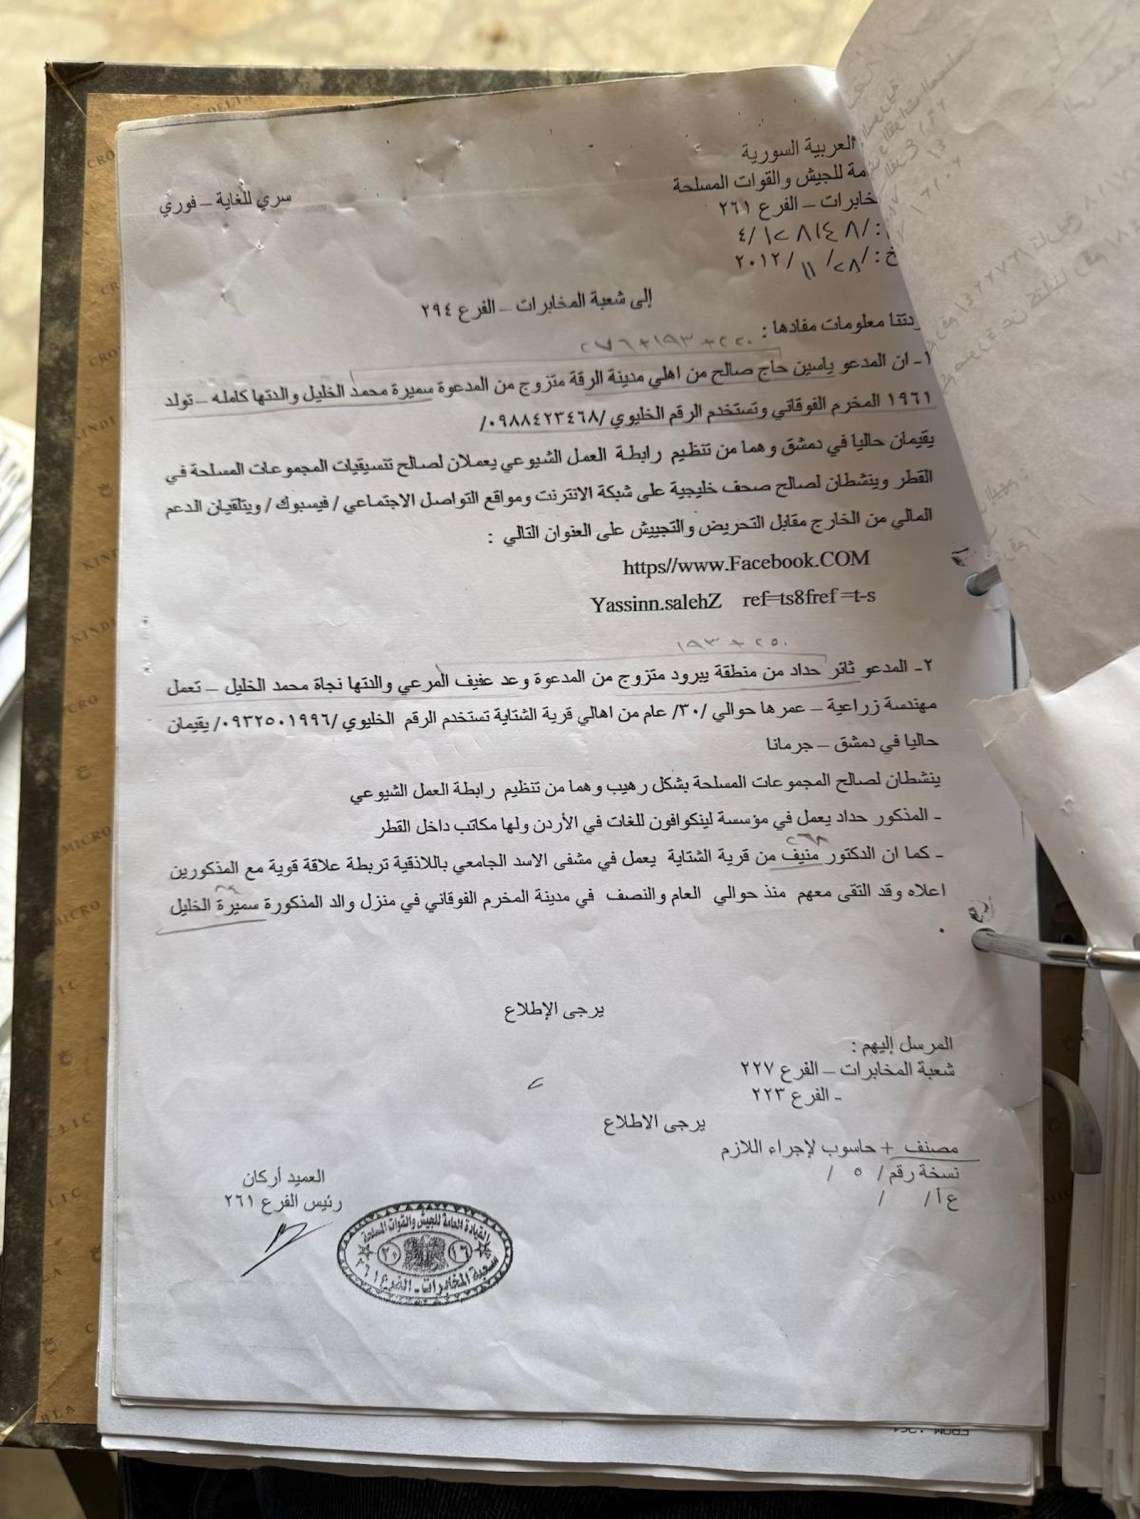 العربية السورية
مة للجيش والقوات المسلحة
خابرات – الفرع ٢٦١
سري للغاية – فوري
خ : /٢٨/ ١١ /٢٠١٢
إلى شعبة المخابرات – الفرع ٢٩٤
ردتنا معلومات مفادها :
٢٢٠ + ١٩٣ + ٢٧٦
١- ان المدعو ياسين حاج صالح من اهلي مدينة الرقة متزوج من المدعوة سميرة محمد الخليل والدتها كامله – تولد
١٩٦١ المخرم الفوقاني وتستخدم الرقم الخليوي /٠٩٨٨٤٢٣٤٦٨/
يقيمان حاليا في دمشق وهما من تنظيم رابطة العمل الشيوعي يعملان لصالح تنسيقيات المجموعات المسلحة في
القطر وينشطان لصالح صحف خليجية على شبكة الانترنت ومواقع التواصل الاجتماعي / فيسبوك / ويتلقيان الدعم
المالي من الخارج مقابل التحريض والتجييش على العنوان التالي :
https//www.Facebook.COM
Yassinn.salehZ ref=ts8fref =t-s
٢٥٠ + ١٩٣
٢- المدعو ثائر حداد من منطقة يبرود متزوج من المدعوة وعد عفيف المرعي والدتها نجاة محمد الخليل – تعمل
مهندسة زراعية – عمرها حوالي /٣٠/ عام من اهالي قرية الشتاية تستخدم الرقم الخليوي /٠٩٣٢٥٠١٩٩٦/ يقيمان
حاليا في دمشق – جرمانا
ينشطان لصالح المجموعات المسلحة بشكل رهيب وهما من تنظيم رابطة العمل الشيوعي
- المذكور حداد يعمل في مؤسسة لينكوافون للغات في الأردن ولها مكاتب داخل القطر
٢٦٨
- كما ان الدكتور منيف من قرية الشتاية يعمل في مشفى الاسد الجامعي باللاذقية تربطة علاقة قوية مع المذكورين
اعلاه وقد التقى معهم منذ حوالي العام والنصف في مدينة المخرم الفوقاني في منزل والد المذكورة سميرة الخليل
.
يرجى الإطلاع
المرسل إليهم :
شعبة المخابرات – الفرع ٢٢٧
- الفرع ٢٢٣
يرجى الاطلاع
مصنف + حاسوب لإجراء اللازم
نسخة رقم / ٥ /
ع أ / /
العميد أركان
رئيس الفرع ٢٦١
القيادة العامة للجيش والقوات المسلحة
شعبة المخابرات - الفرع ٢٦١